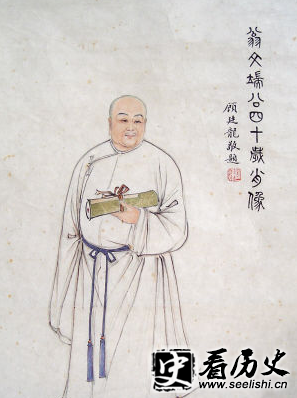 翁文端公四十歲肖像
顾廷龍敬題
看历史
www.seelishi.cn